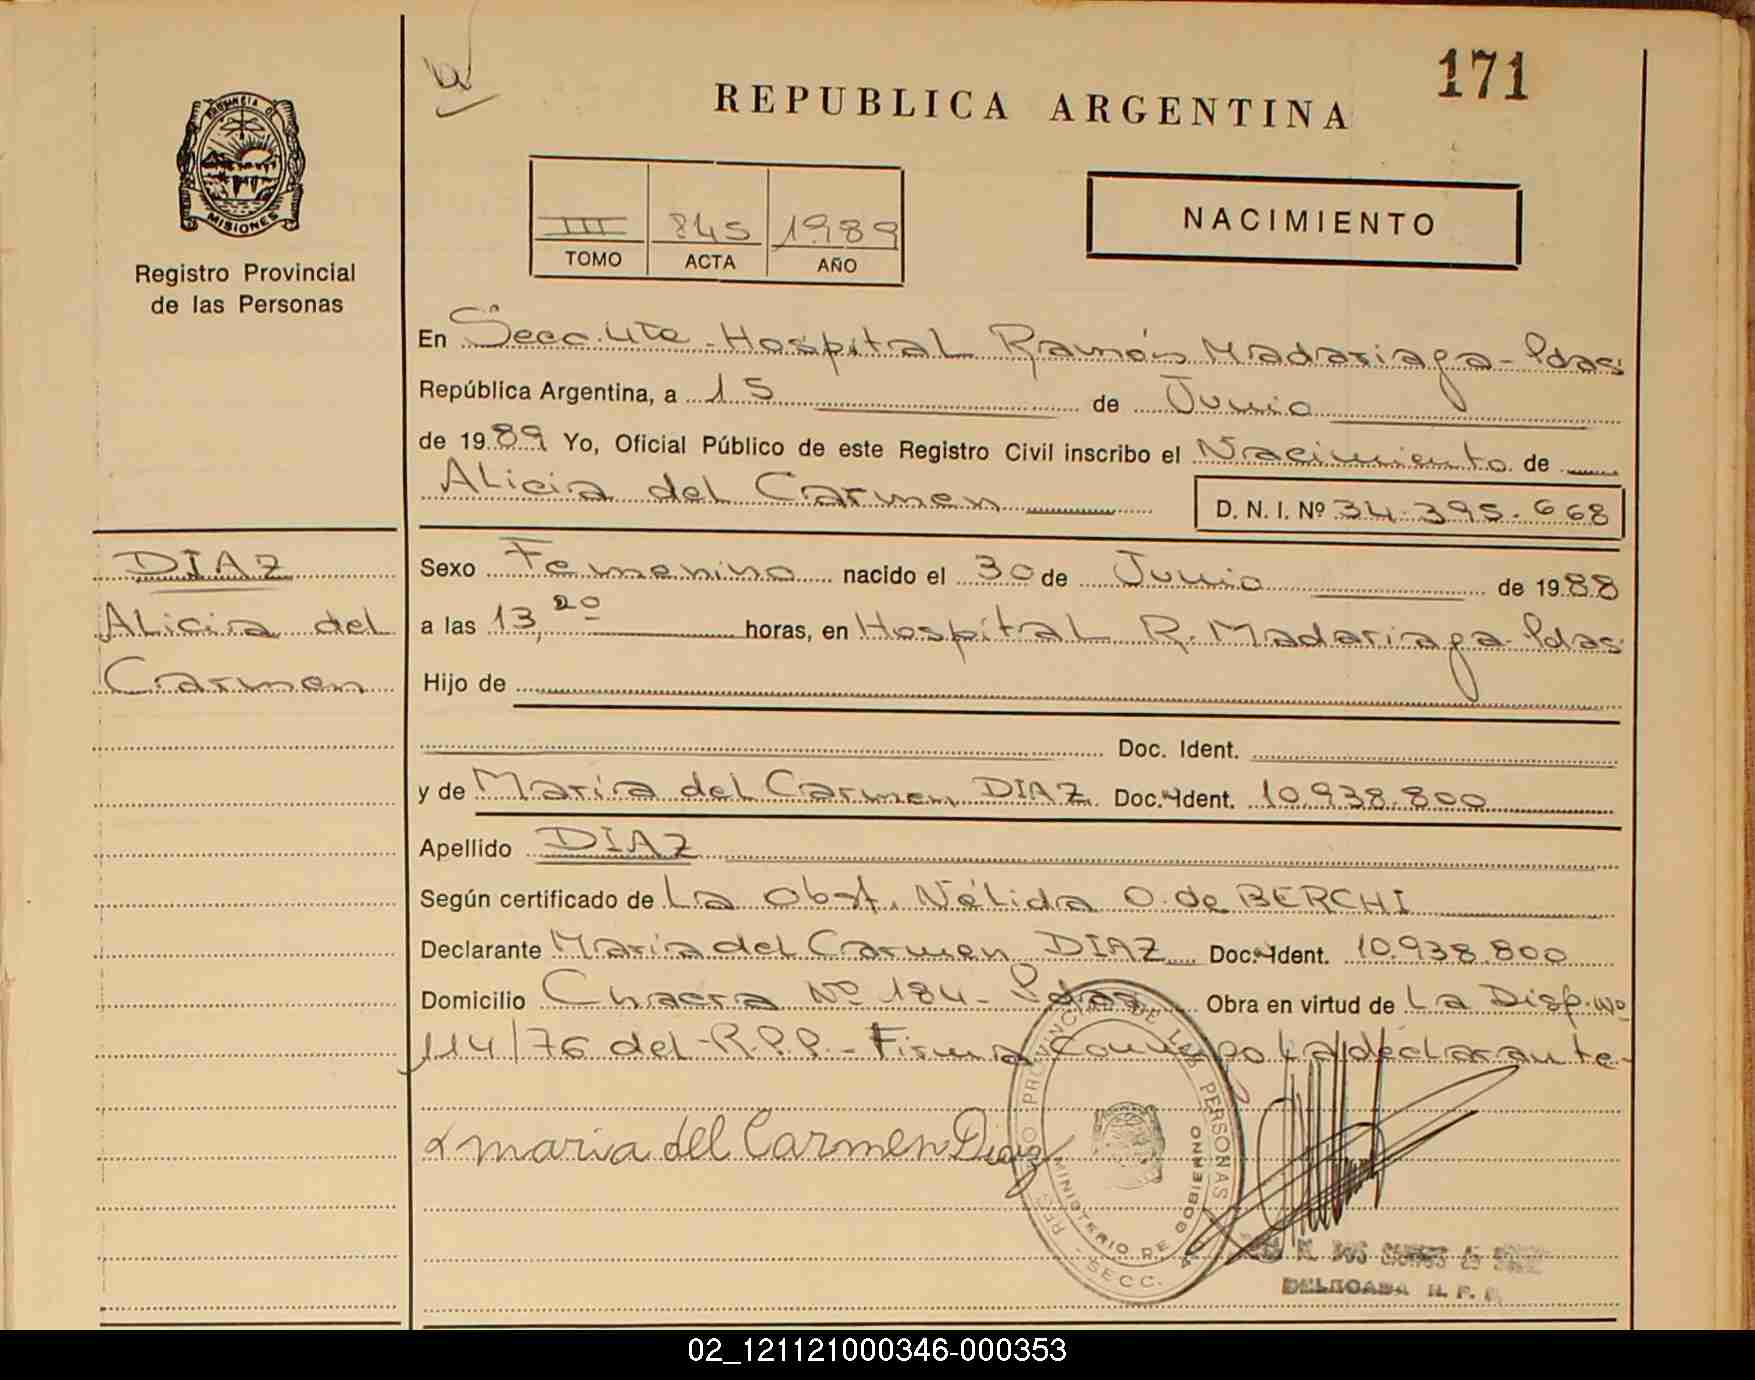 171
REPUBLICA ARGENTINA
PROVINCIA DE
MISIONES
Registro Provincial
de las Personas
III 845 1989
TOMO ACTA AÑO
NACIMIENTO
En Secc. 4ta - Hospital Ramón Madariaga - Pdas
República Argentina, a 15 de Junio
de 1989 Yo, Oficial Público de este Registro Civil inscribo el Nacimiento de
Alicia del Carmen D. N. I. Nº 34.395.668
DIAZ
Alicia del
Carmen
Sexo Femenino nacido el 30 de Junio de 1988
a las 13,20 horas, en Hospital R. Madariaga - Pdas
Hijo de
Doc. Ident.
y de María del Carmen DIAZ Doc. Ident. 10.938.800
Apellido DIAZ
Según certificado de La Obst. Nélida O. de BERCHI
Declarante María del Carmen DIAZ Doc. Ident. 10.938.800
Domicilio Chacra Nº 184 - Pdas Obra en virtud de La Disp. Nº
114/76 del R.P.P. - Firma Conmigo La declarante -
maria del Carmen Diaz
PROVINCIAL DE LAS PERSONAS
MINISTERIO DE GOBIERNO
SECC. 4
DELEGADA R. P. P.
02_121121000346-000353